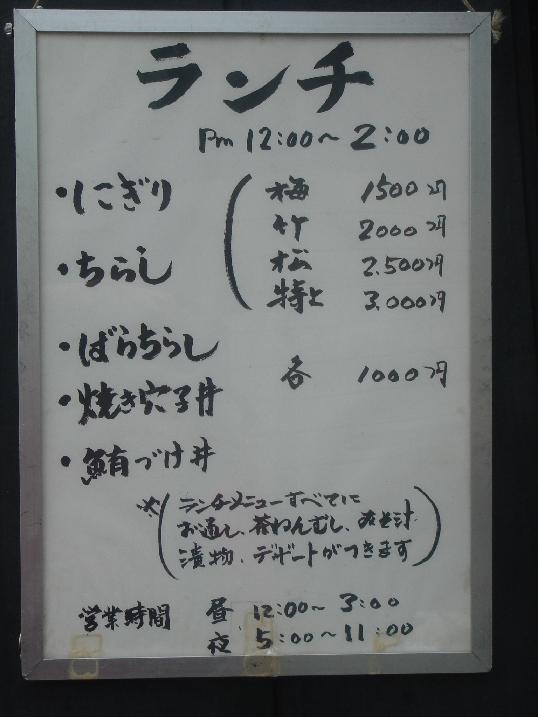 ランチ
Pm 12:00～2:00
・にぎり
・ちらし
梅 1500円
竹 2000円
松 2.500円
特上 3.000円
・ばらちらし
・焼き穴子丼
・鮪づけ丼
各 1000円
※(ランチメニューすべてに
お通し、茶わんむし、みそ汁
漬物、デザートがつきます)
営業時間 昼 12:00～3:00
夜 5:00～11:00